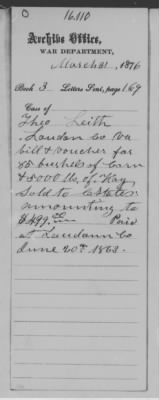 O
16.110
Archive Office,
WAR DEPARTMENT,
March 31, 1876
Book 3 Letters Sent, page 169
Case of
Theo Leith
Loudon Co Va
bill & voucher for
85 bushels of Corn
& 5000 lbs. of Hay
Sold to
amounting to
Paid
at Loudann Co
June 20th 1863.